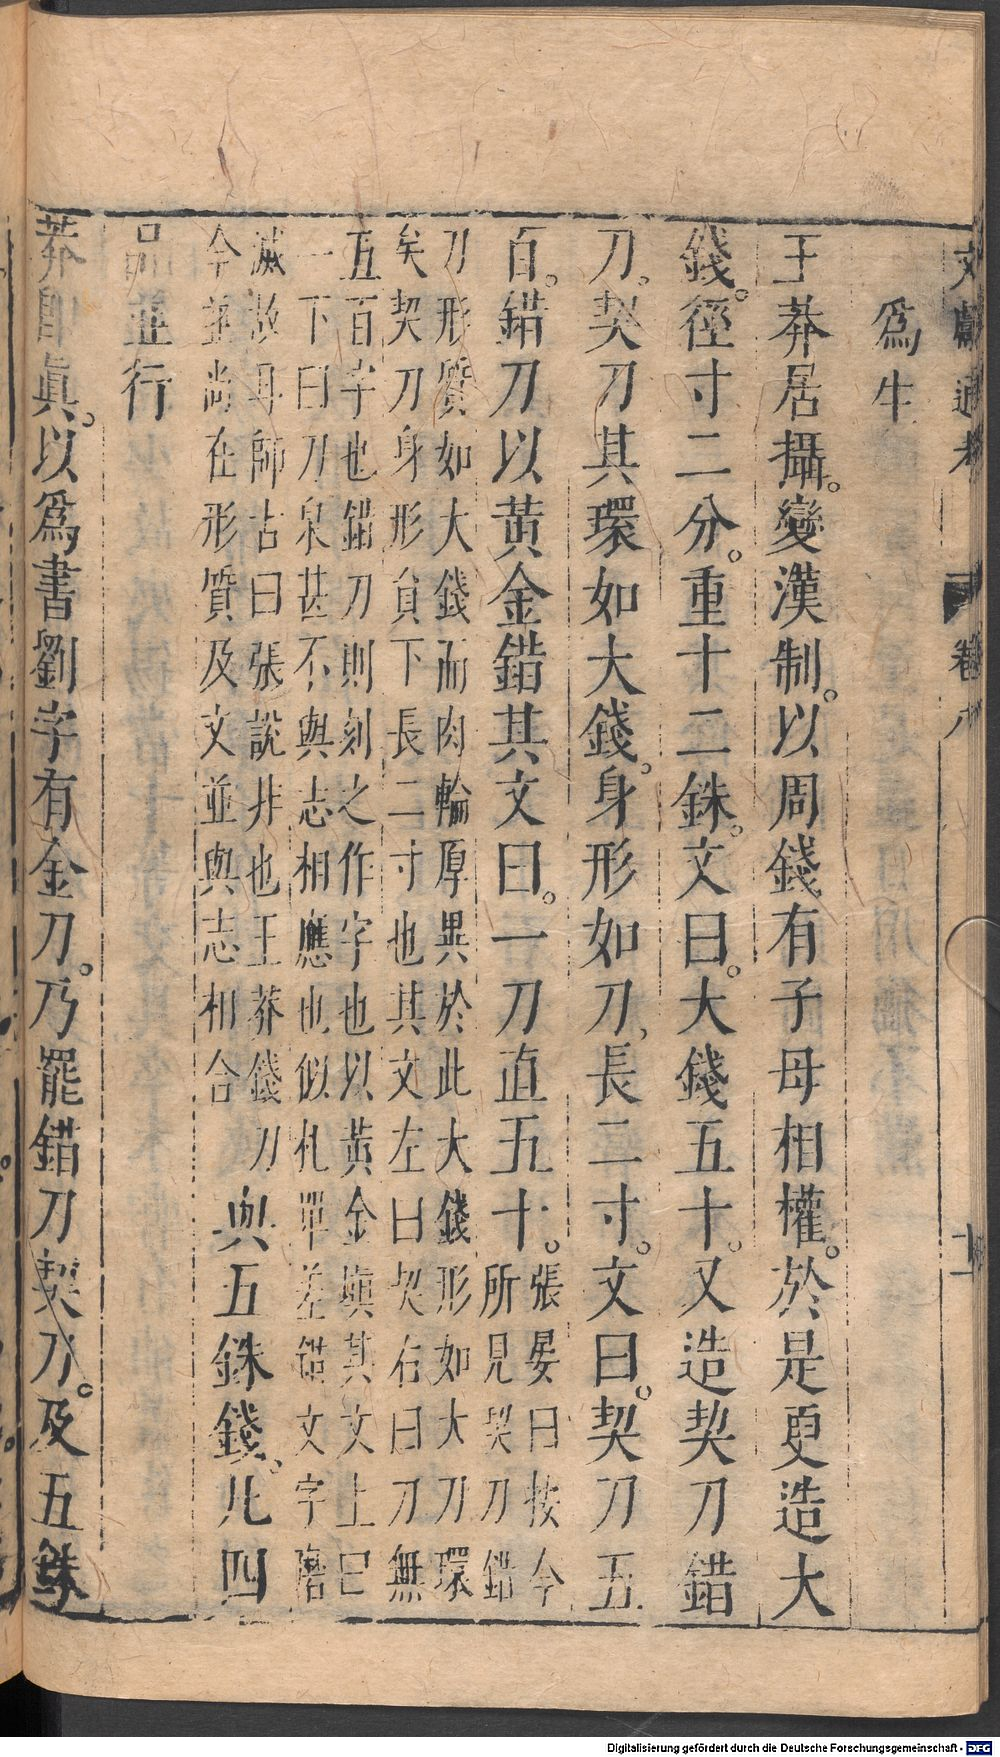 文獻通考 卷八
爲牛
王莽居攝。變漢制。以周錢有子母相權。於是更造大
錢。徑寸二分。重十二銖。文曰。大錢五十。又造契刀錯
刀。契刀其環如大錢。身形如刀、長二寸。文曰。契刀五
百。錯刀以黃金錯其文曰。一刀直五十。張晏曰按今
所見契刀錯
刀形質如大錢而肉輪厚異於此大錢形如大刀環
矣契刀身形貟下長二寸也其文左曰契右曰刀無
五百字也錯刀則刻之作字也以黃金塡其文上曰
一下曰刀泉甚不與志相應也似札單差錯文字磨
滅故耳師古曰張說非也王莽錢刀
今並尚在形質及文並與志相合
與五銖錢。凢四
品並行
莽卽眞。以爲書劉字有金刀。乃罷錯刀契刀。及五銖
Digitalisierung gefördert durch die Deutsche Forschungsgemeinschaft - DFG